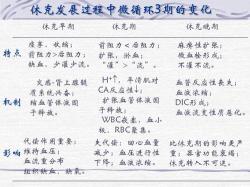 休克发展过程中微循环3期的变化
休克早期 休克期 休克晚期
特点
痉挛、收缩;
前阻力>后阻力;
缺血、少灌少流。
前阻力<后阻力;
扩张、淤血;
“灌”>“流”。
麻痹性扩张;
微血栓形成;
不灌不流。
机制
交感-肾上腺髓
质系统兴奋;
缩血管体液因
子释放。
H+↑,平滑肌对
CA反应性↓;
扩张血管体液因
子释放;
WBC嵌塞,血小
板、RBC聚集。
血管反应性丧失;
血液浓缩;
DIC形成;
血液流变性质恶化。
影响
代偿作用重要:
维持血压;
血流重分布
组织缺血、缺氧。
失代偿:回心血量
减少;血压进行性
下降;血液浓缩。
比休克期的影响更严
重;器官功能衰竭;
休克转入不可逆。